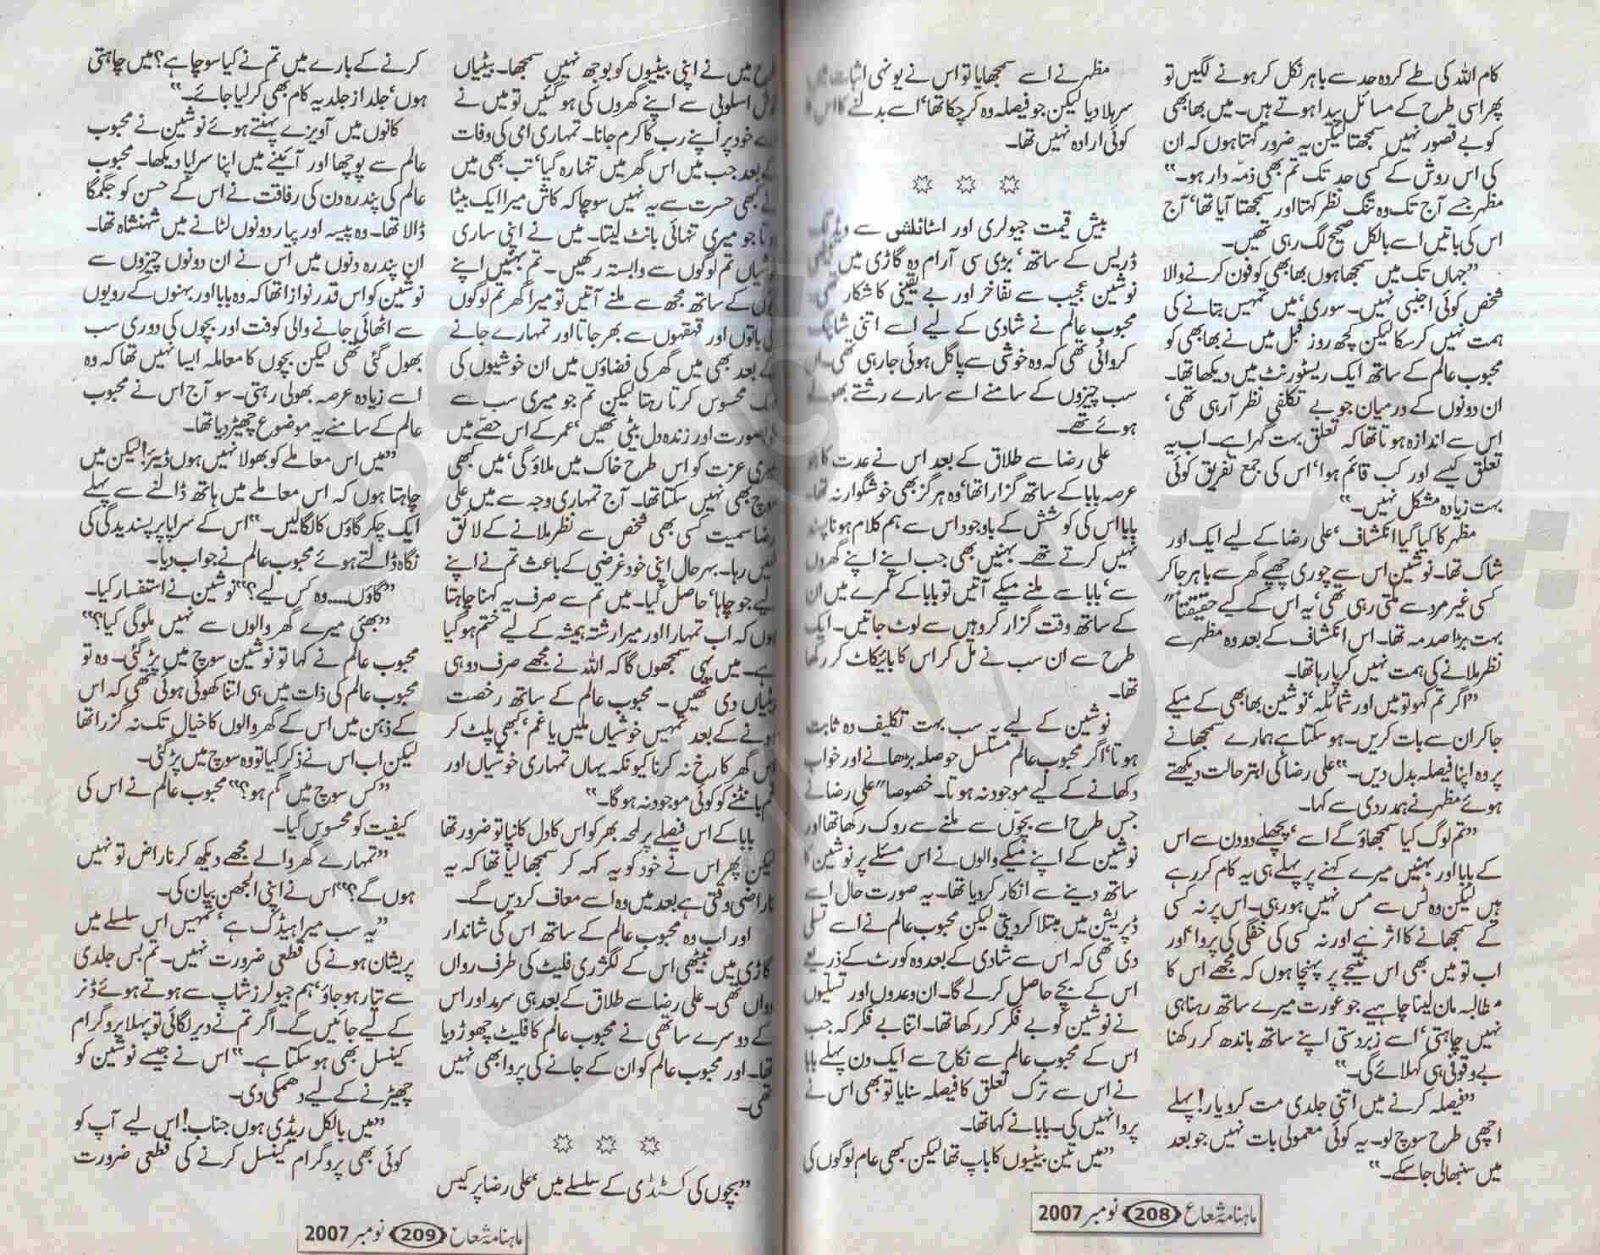 کام اللہ کی طے کردہ حد سے باہر نکل کر ہونے لگیں تو
پھر اسی طرح کے مسائل پیدا ہوتے ہیں۔ میں بھابھی
کو بے قصور نہیں سمجھتا لیکن یہ ضرور کہتا ہوں کہ ان
کی اس روش کے کسی حد تک تم بھی ذمہ دار ہو۔"
مظہر جسے آج تک وہ تنگ نظر کہتا اور سمجھتا آیا تھا' آج
اس کی باتیں اسے بالکل صحیح لگ رہی تھیں۔
"جہاں تک میں سمجھا ہوں بھابھی کو فون کرنے والا
شخص کوئی اجنبی نہیں۔ سوری' میں تمہیں بتانے کی
ہمت نہیں کر سکا لیکن کچھ روز قبل میں نے بھابھی کو
محبوب عالم کے ساتھ ایک ریسٹورنٹ میں دیکھا تھا۔
ان دونوں کے درمیان جو بے تکلفی نظر آ رہی تھی'
اس سے اندازہ ہوتا تھا کہ تعلق بہت گہرا ہے۔ اب یہ
تعلق کیسے اور کب قائم ہوا' اس کی جمع تفریق کوئی
بہت زیادہ مشکل نہیں۔"
مظہر کا کیا گیا انکشاف' علی رضا کے لیے ایک اور
شاک تھا۔ نوشین اس سے چوری چھپے گھر سے باہر جا کر
کسی غیر مرد سے ملتی رہی تھی' یہ اس کے لیے حقیقتاً"
بہت بڑا صدمہ تھا۔ اس انکشاف کے بعد وہ مظہر سے
نظر ملانے کی ہمت نہیں کر پا رہا تھا۔
"اگر تم کہو تو میں اور شمائلہ' نوشین بھابھی کے میکے
جا کر ان سے بات کریں۔ ہو سکتا ہے ہمارے سمجھانے
پر وہ اپنا فیصلہ بدل دیں۔" علی رضا کی ابتر حالت دیکھتے
ہوئے مظہر نے ہمدردی سے کہا۔
"تم لوگ کیا سمجھاؤ گے اسے' پچھلے دو دن سے اس
کے بابا اور بہنیں میرے کہنے پر پہلے ہی یہ کام کر رہے
ہیں لیکن وہ ٹس سے مس نہیں ہو رہی۔ اس پر نہ کسی
کے سمجھانے کا اثر ہے اور نہ کسی کی خفگی کی پروا' اور
اب تو میں بھی اس نتیجے پر پہنچا ہوں کہ مجھے اس کا
مطالبہ مان لینا چاہیے جو عورت میرے ساتھ رہنا ہی
نہیں چاہتی' اسے زبردستی اپنے ساتھ باندھ کر رکھنا
بے وقوفی ہی کہلائے گی۔"
"فیصلہ کرنے میں اتنی جلدی مت کرو یار! پہلے
اچھی طرح سوچ لو۔ یہ کوئی معمولی بات نہیں جو بعد
میں سنبھالی جا سکے۔"
مظہر نے اسے سمجھایا تو اس نے یونہی اثبات میں
سر ہلا دیا لیکن جو فیصلہ وہ کر چکا تھا' اسے بدلنے کا اس کا
کوئی ارادہ نہیں تھا۔
بیش قیمت جیولری اور اسٹائلش سے ویڈنگ
ڈریس کے ساتھ' بڑی سی آرام دہ گاڑی میں بیٹھی
نوشین عجیب سے تفاخر اور بے یقینی کا شکار تھی۔
محبوب عالم نے شادی کے لیے اسے اتنی شاپنگ
کروائی تھی کہ وہ خوشی سے پاگل ہوئی جا رہی تھی۔ ان
سب چیزوں کے سامنے اسے سارے رشتے بھولے
ہوئے تھے۔
علی رضا سے طلاق کے بعد اس نے عدت کا جو
عرصہ بابا کے ساتھ گزارا تھا' وہ ہرگز بھی خوشگوار نہ تھا۔
بابا اس کی کوشش کے باوجود اس سے ہم کلام ہونا پسند
نہیں کرتے تھے۔ بہنیں بھی جب اپنے اپنے گھروں
سے' بابا سے ملنے میکے آتیں تو بابا کے کمرے میں ان
کے ساتھ وقت گزار کر وہیں سے لوٹ جاتیں۔ ایک
طرح سے ان سب نے مل کر اس کا بائیکاٹ کر رکھا
تھا۔
نوشین کے لیے یہ سب بہت تکلیف دہ ثابت
ہوتا' اگر محبوب عالم مسلسل حوصلہ بڑھانے اور خواب
دکھانے کے لیے موجود نہ ہوتا۔ خصوصاً" علی رضا نے
جس طرح اسے بچوں سے ملنے سے روک رکھا تھا اور
نوشین کے اپنے میکے والوں نے اس مسئلے پر نوشین کا
ساتھ دینے سے انکار کر دیا تھا۔ یہ صورت حال اسے
ڈپریشن میں مبتلا کر دیتی لیکن محبوب عالم نے اسے تسلی
دی تھی کہ اس سے شادی کے بعد وہ کورٹ کے ذریعے
اس کے بچے حاصل کر لے گا۔ ان وعدوں اور تسلیوں
نے نوشین کو بے فکر کر رکھا تھا۔ اتنا بے فکر کہ جب
اس کے محبوب عالم سے نکاح سے ایک دن پہلے بابا
نے اس سے ترک تعلق کا فیصلہ سنایا تو بھی اس نے
پروا نہیں کی۔ بابا نے کہا تھا۔
"میں تین بیٹیوں کا باپ تھا لیکن کبھی عام لوگوں کی
ماہنامہ شعاع 208 نومبر 2007
طرح میں نے اپنی بیٹیوں کو بوجھ نہیں سمجھا۔ بیٹیاں
خوش اسلوبی سے اپنے گھروں کی ہو گئیں تو میں نے
اسے خود پر اپنے رب کا کرم جانا۔ تمہاری امی کی وفات
کے بعد جب میں اس گھر میں تنہا رہ گیا' تب بھی میں
نے کبھی حسرت سے یہ نہیں سوچا کہ کاش میرا ایک بیٹا
ہوتا جو میری تنہائی بانٹ لیتا۔ میں نے اپنی ساری
خوشیاں تم لوگوں سے وابستہ رکھیں۔ تم بہنیں اپنے
بچوں کے ساتھ مجھ سے ملنے آتیں تو میرا گھر تم لوگوں
کی باتوں اور قہقہوں سے بھر جاتا اور تمہارے جانے
کے بعد بھی میں گھر کی فضاؤں میں ان خوشیوں کی
مہک محسوس کرتا رہتا لیکن تم جو میری سب سے
خوبصورت اور زندہ دل بیٹی تھیں' عمر کے اس حصے میں
میری عزت کو اس طرح خاک میں ملاؤ گی' میں کبھی
سوچ بھی نہیں سکتا تھا۔ آج تمہاری وجہ سے میں علی
رضا سمیت کسی بھی شخص سے نظر ملانے کے لائق
نہیں رہا۔ بہرحال اپنی خود غرضی کے باعث تم نے اپنے
لیے جو چاہا' حاصل کیا۔ میں تم سے صرف یہ کہنا چاہتا
ہوں کہ اب تمہارا اور میرا رشتہ ہمیشہ کے لیے ختم ہو گیا
ہے۔ میں یہی سمجھوں گا کہ اللہ نے مجھے صرف دو ہی
بیٹیاں دی تھیں۔ محبوب عالم کے ساتھ رخصت
ہونے کے بعد تمہیں خوشیاں ملیں یا غم' کبھی پلٹ کر
اس گھر کا رخ نہ کرنا کیونکہ یہاں تمہاری خوشیاں اور
غم بانٹنے کو کوئی موجود نہ ہو گا۔"
بابا کے اس فیصلے پر لمحہ بھر کو اس کا دل کانپا تو ضرور تھا
لیکن پھر اس نے خود کو یہ کہہ کر سمجھا لیا تھا کہ یہ
ناراضی وقتی ہے بعد میں وہ اسے معاف کر دیں گے۔
اور اب وہ محبوب عالم کے ساتھ اس کی شاندار
گاڑی میں بیٹھی اس کے لگژری فلیٹ کی طرف رواں
دواں تھی۔ علی رضا سے طلاق کے بعد ہی سرمد اور اس
کے دوسرے ساتھی نے محبوب عالم کا فلیٹ چھوڑ دیا
تھا۔ اور محبوب عالم کو ان کے جانے کی پروا بھی نہیں
تھی۔
"بچوں کی کسٹڈی کے سلسلے میں' علی رضا پر کیس
کرنے کے بارے میں تم نے کیا سوچا ہے؟ میں چاہتی
ہوں' جلد از جلد یہ کام بھی کر لیا جائے۔"
کانوں میں آویزے پہنتے ہوئے نوشین نے محبوب
عالم سے پوچھا اور آئینے میں اپنا سراپا دیکھا۔ محبوب
عالم کی پندرہ دن کی رفاقت نے اس کے حسن کو جگمگا
ڈالا تھا۔ وہ پیسہ اور پیار دونوں لٹانے میں شہنشاہ تھا۔
ان پندرہ دنوں میں اس نے ان دونوں چیزوں سے
نوشین کو اس قدر نوازا تھا کہ وہ بابا اور بہنوں کے رویوں
سے اٹھائی جانے والی کوفت اور بچوں کی دوری سب
بھول گئی تھی لیکن بچوں کا معاملہ ایسا نہیں تھا کہ وہ
اسے زیادہ عرصہ بھولی رہتی۔ سو آج اس نے محبوب
عالم کے سامنے یہ موضوع چھیڑ دیا تھا۔
"میں اس معاملے کو بھولا نہیں ہوں ڈیئر! لیکن میں
چاہتا ہوں کہ اس معاملے میں ہاتھ ڈالنے سے پہلے
ایک چکر گاؤں کا لگا لیں۔" اس کے سراپا پر پسندیدگی کی
نگاہ ڈالتے ہوئے محبوب عالم نے جواب دیا۔
"گاؤں.... وہ کس لیے؟" نوشین نے استفسار کیا۔
"بھئی میرے گھر والوں سے نہیں ملو گی کیا؟"
محبوب عالم نے کہا تو نوشین سوچ میں پڑ گئی۔ وہ تو
محبوب عالم کی ذات میں ہی اتنا کھوئی ہوئی تھی کہ اس
کے ذہن میں اس کے گھر والوں کا خیال تک نہ گزرا تھا
لیکن اب اس نے ذکر کیا تو وہ سوچ میں پڑ گئی۔
"کس سوچ میں گم ہو؟" محبوب عالم نے اس کی
کیفیت کو محسوس کیا۔
"تمہارے گھر والے مجھے دیکھ کر ناراض تو نہیں
ہوں گے؟" اس نے اپنی الجھن بیان کی۔
"یہ سب میرا ہیڈک ہے' تمہیں اس سلسلے میں
پریشان ہونے کی قطعی ضرورت نہیں۔ تم بس جلدی
سے تیار ہو جاؤ' ہم جیولرز شاپ سے ہوتے ہوئے ڈنر
کے لیے جائیں گے۔ اگر تم نے دیر لگائی تو پہلا پروگرام
کینسل بھی ہو سکتا ہے۔" اس نے جیسے نوشین کو
چھیڑنے کے لیے دھمکی دی۔
"میں بالکل ریڈی ہوں جناب! اس لیے آپ کو
کوئی بھی پروگرام کینسل کرنے کی قطعی ضرورت
ماہنامہ شعاع 209 نومبر 2007